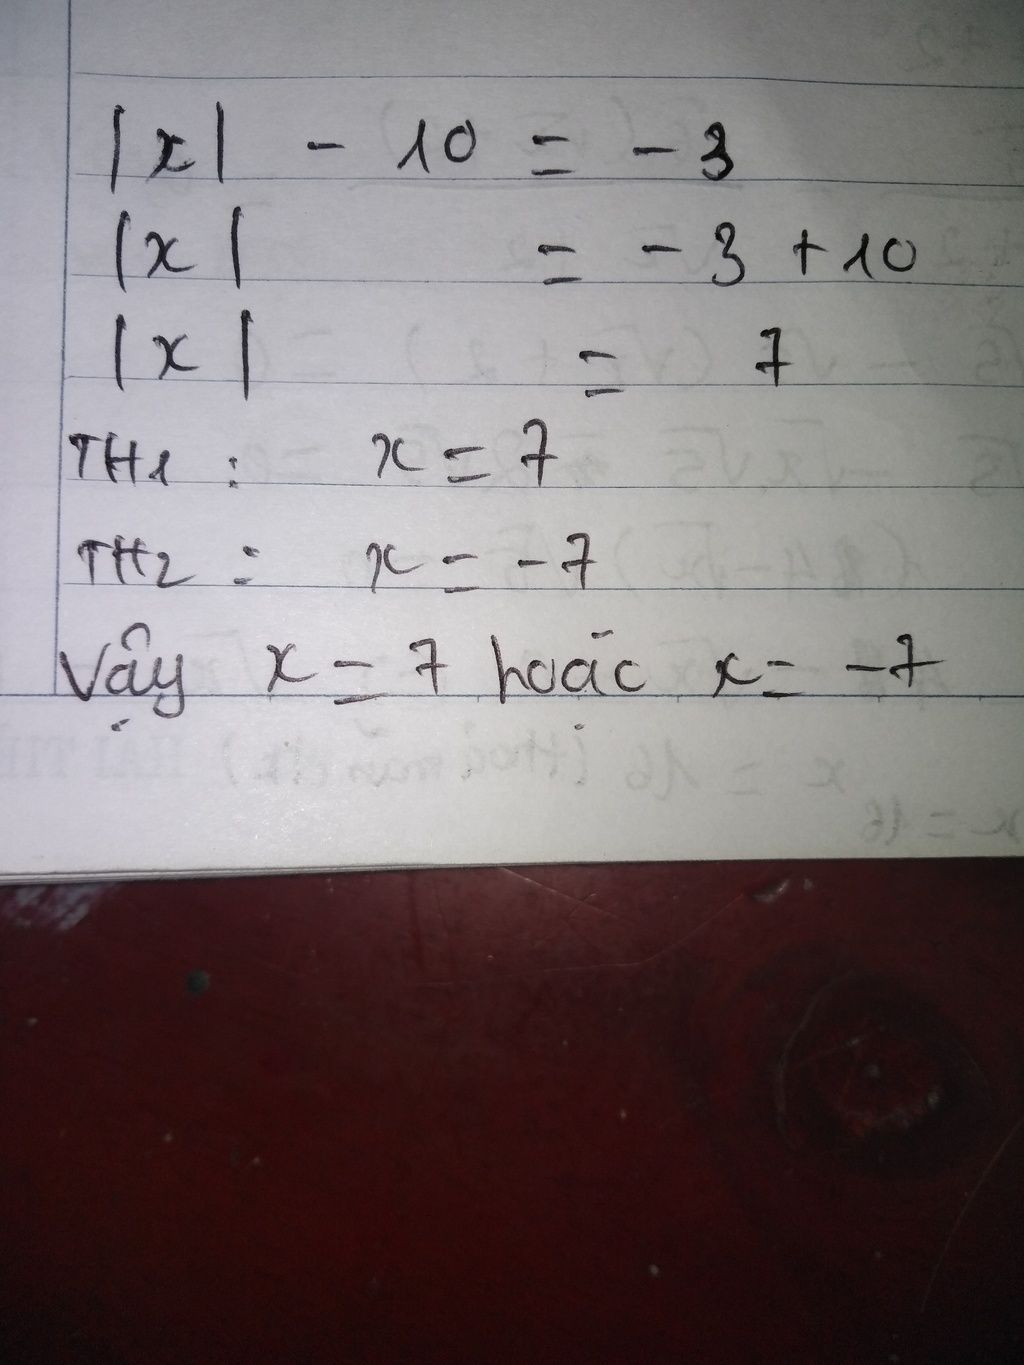 |x| - 10 = - 3
|x| = - 3 + 10
|x| = 7
TH1 : x = 7
TH2 : x = - 7
Vậy x = 7 hoặc x = - 7